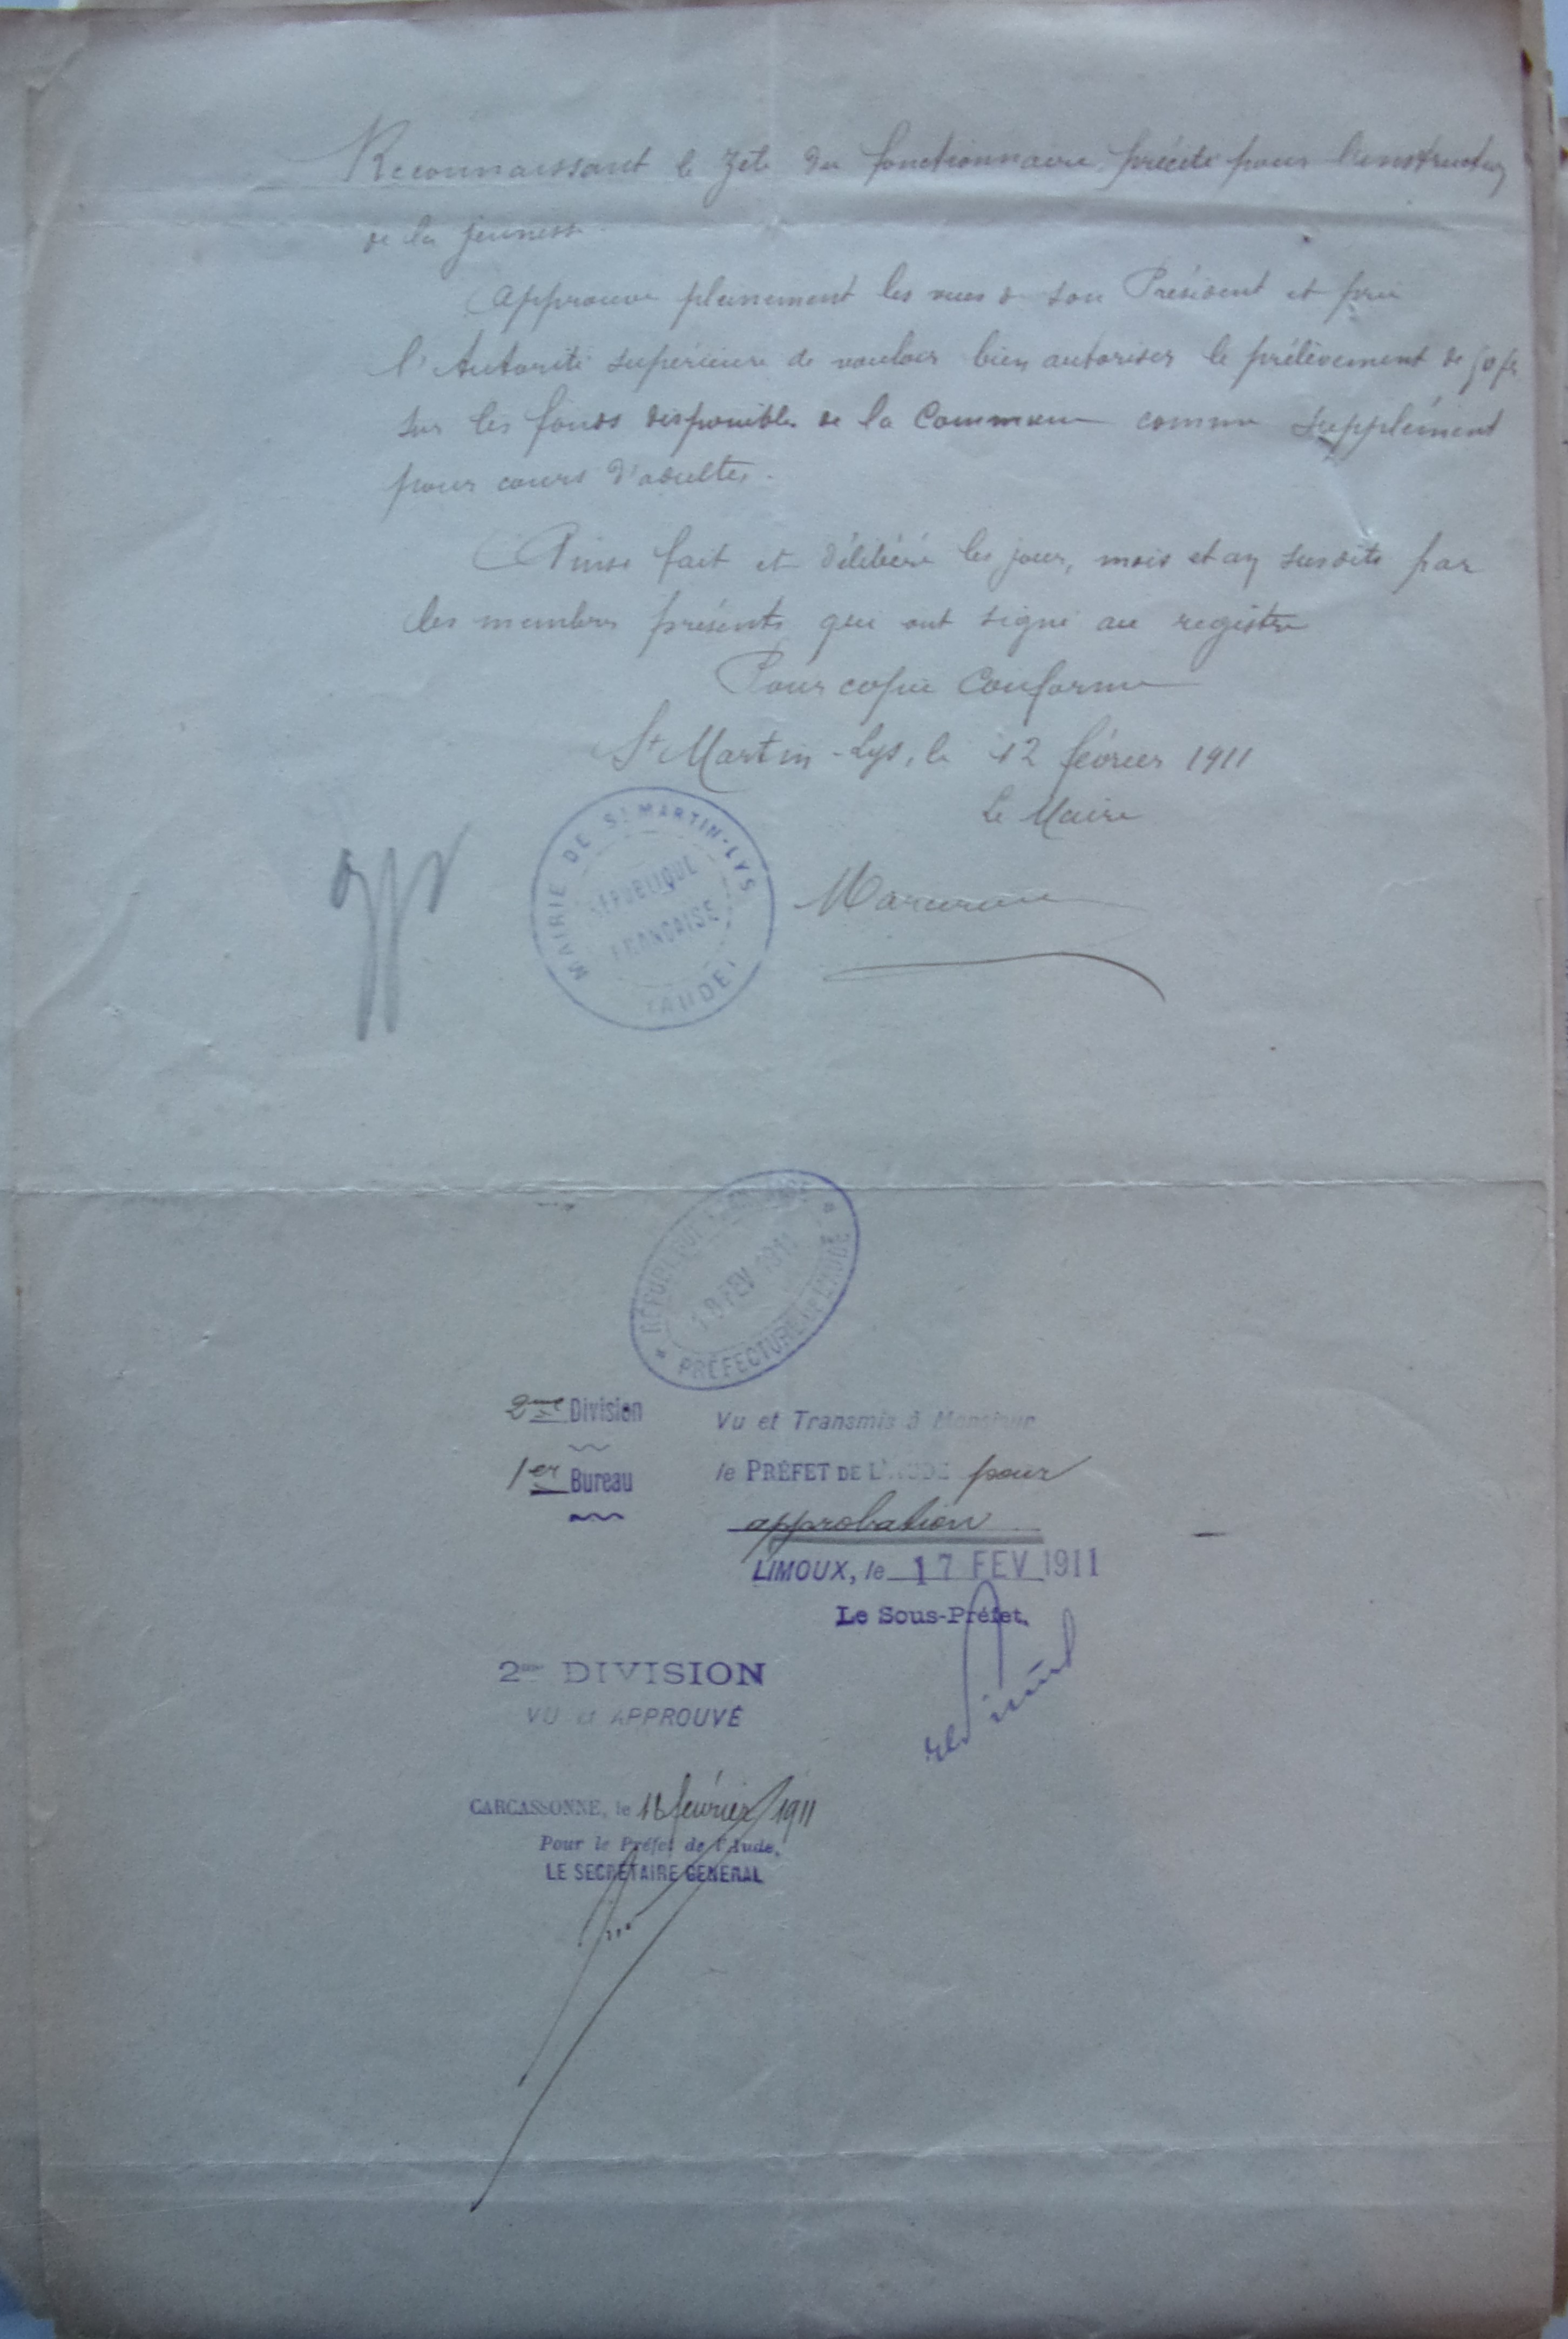 Reconnaissant le zèle du fonctionnaire précité pour l'instruction
de la jeunesse.
Approuve pleinement les vues de son Président et prie
l'Autorité supérieure de vouloir bien autoriser le prélèvement de 50 frs
sur les fonds disponibles de la Commune comme supplément
pour cours d'adultes.
Ainsi fait et délibéré les jour, mois et an susdits par
les membres présents qui ont signé au registre
Pour copie conforme
St Martin-Lys, le 12 février 1911
Le Maire
MAIRIE DE ST MARTIN-LYS
RÉPUBLIQUE
FRANÇAISE
(AUDE)
RÉPUBLIQUE FRANÇAISE
FEV 1911
PRÉFECTURE DE L'AUDE
2me Division
Vu et Transmis à Monsieur
1er Bureau
le PRÉFET DE L'AUDE pour
approbation
LIMOUX, le 17 FEV 1911
Le Sous-Préfet.
2me DIVISION
VU et APPROUVÉ
CARCASSONNE, le février 1911
Pour le Préfet de l'Aude,
LE SECRÉTAIRE GÉNÉRAL